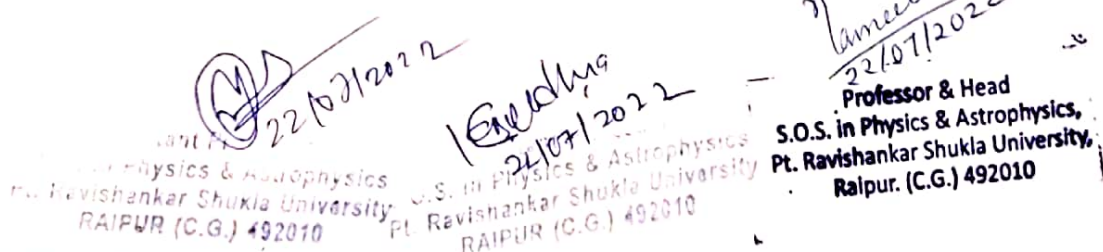 22/07/2022
Physics & Astrophysics
Pt. Ravishankar Shukla University
RAIPUR (C.G.) 492010
22/07/2022
S.O.S. in Physics & Astrophysics
Pt. Ravishankar Shukla University
RAIPUR (C.G.) 492010
22/07/2022
Professor & Head
S.O.S. in Physics & Astrophysics,
Pt. Ravishankar Shukla University,
Raipur. (C.G.) 492010